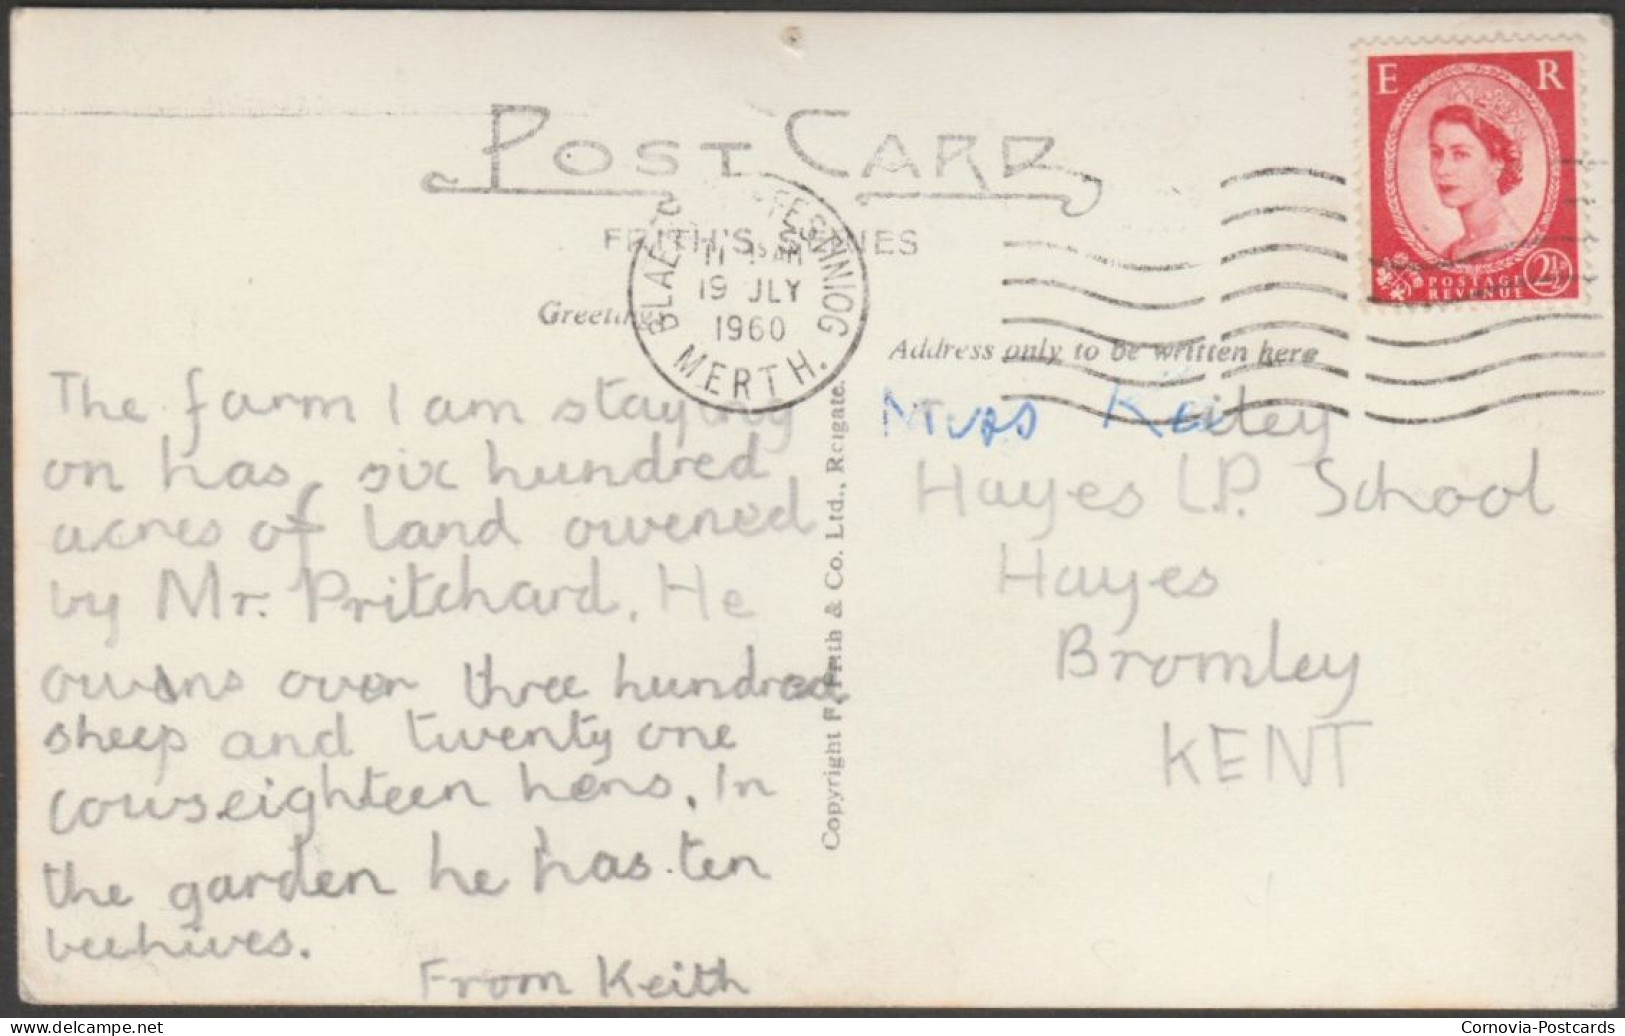 POST CARD
FRITH'S SERIES
BLAENAU FFESTINIOG
11 15 AM
19 JLY
1960
MERTH.
E R
POSTAGE
REVENUE
2½
Greetings
Address only to be written here
The farm I am staying
on has six hundred
acres of land owened
by Mr. Pritchard. He
owens over three hundred
sheep and twenty one
cows eighteen hens. In
the garden he has ten
beehives.
From Keith
Copyright F. Frith & Co. Ltd., Reigate.
Miss
Hayes I.P. School
Hayes
Bromley
KENT
Cornovia-Postcards